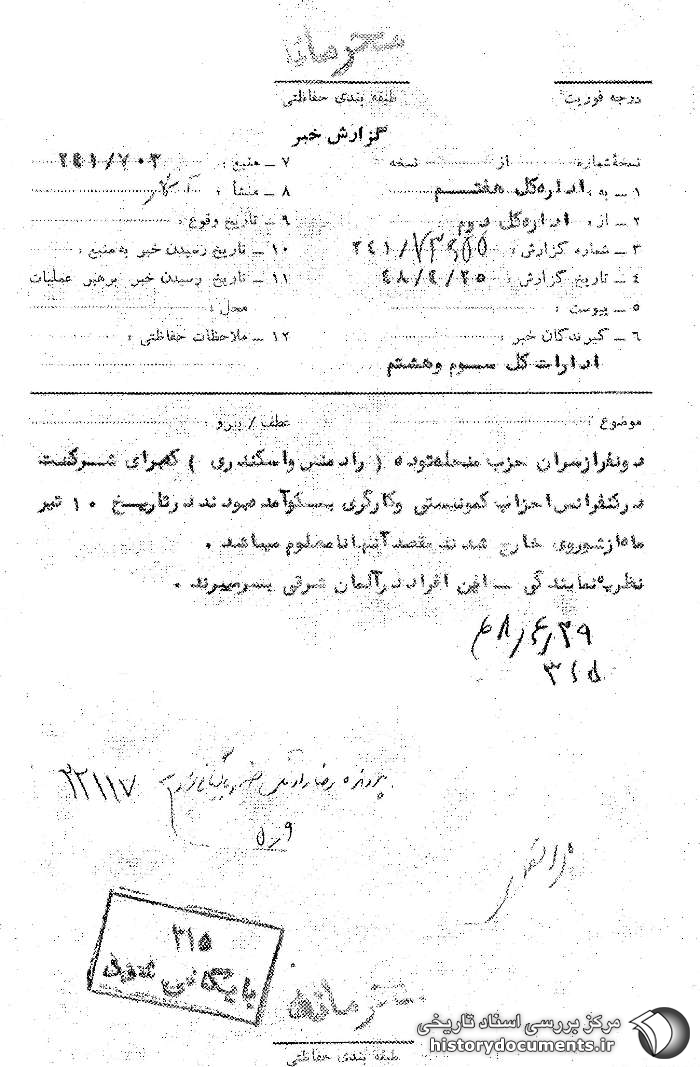 محرمانه
درجه فوریت
طبقه بندی حفاظتی
گزارش خبر
نسخهٔ شماره از نسخه
۱ ـ به : اداره کل هفتم
۲ ـ از : اداره کل دوم
۳ ـ شماره گزارش : ۲۴۱/
۴ ـ تاریخ گزارش : ۴۸/۴/۲۵
۵ ـ پیوست :
۶ ـ گیرندگان خبر :
ادارات کل سوم وهشتم
۷ ـ منبع : ۲۴۱/۷۰۲
۸ ـ منشأ :
۹ ـ تاریخ وقوع :
۱۰ ـ تاریخ رسیدن خبر به منبع :
۱۱ ـ تاریخ رسیدن خبر برهبر عملیات
محل :
۱۲ ـ ملاحظات حفاظتی :
موضوع :
عطف / پیرو :
دونفرازسران حزب منحله توده ( رادمنش واسکندری ) که برای شرکت
درکنفرانس احزاب کمونیستی وکارگری بمسکوآمده بودند درتاریخ ۱۰ تیر
ماه ازشوروی خارج شدند مقصد آنها نامعلوم میباشد .
نظریه نمایندگی ـ این افراد درآلمان شرقی بسرمیبرند .
۴۸/۴/۲۹
۳۱۵
پرونده رضا رادمنش
۲۲۱۱۷
۵/۹
۳۱۵
بایگانی شود
محرمانه
طبقه بندی حفاظتی
مرکز بررسی اسناد تاریخی
historydocuments.ir